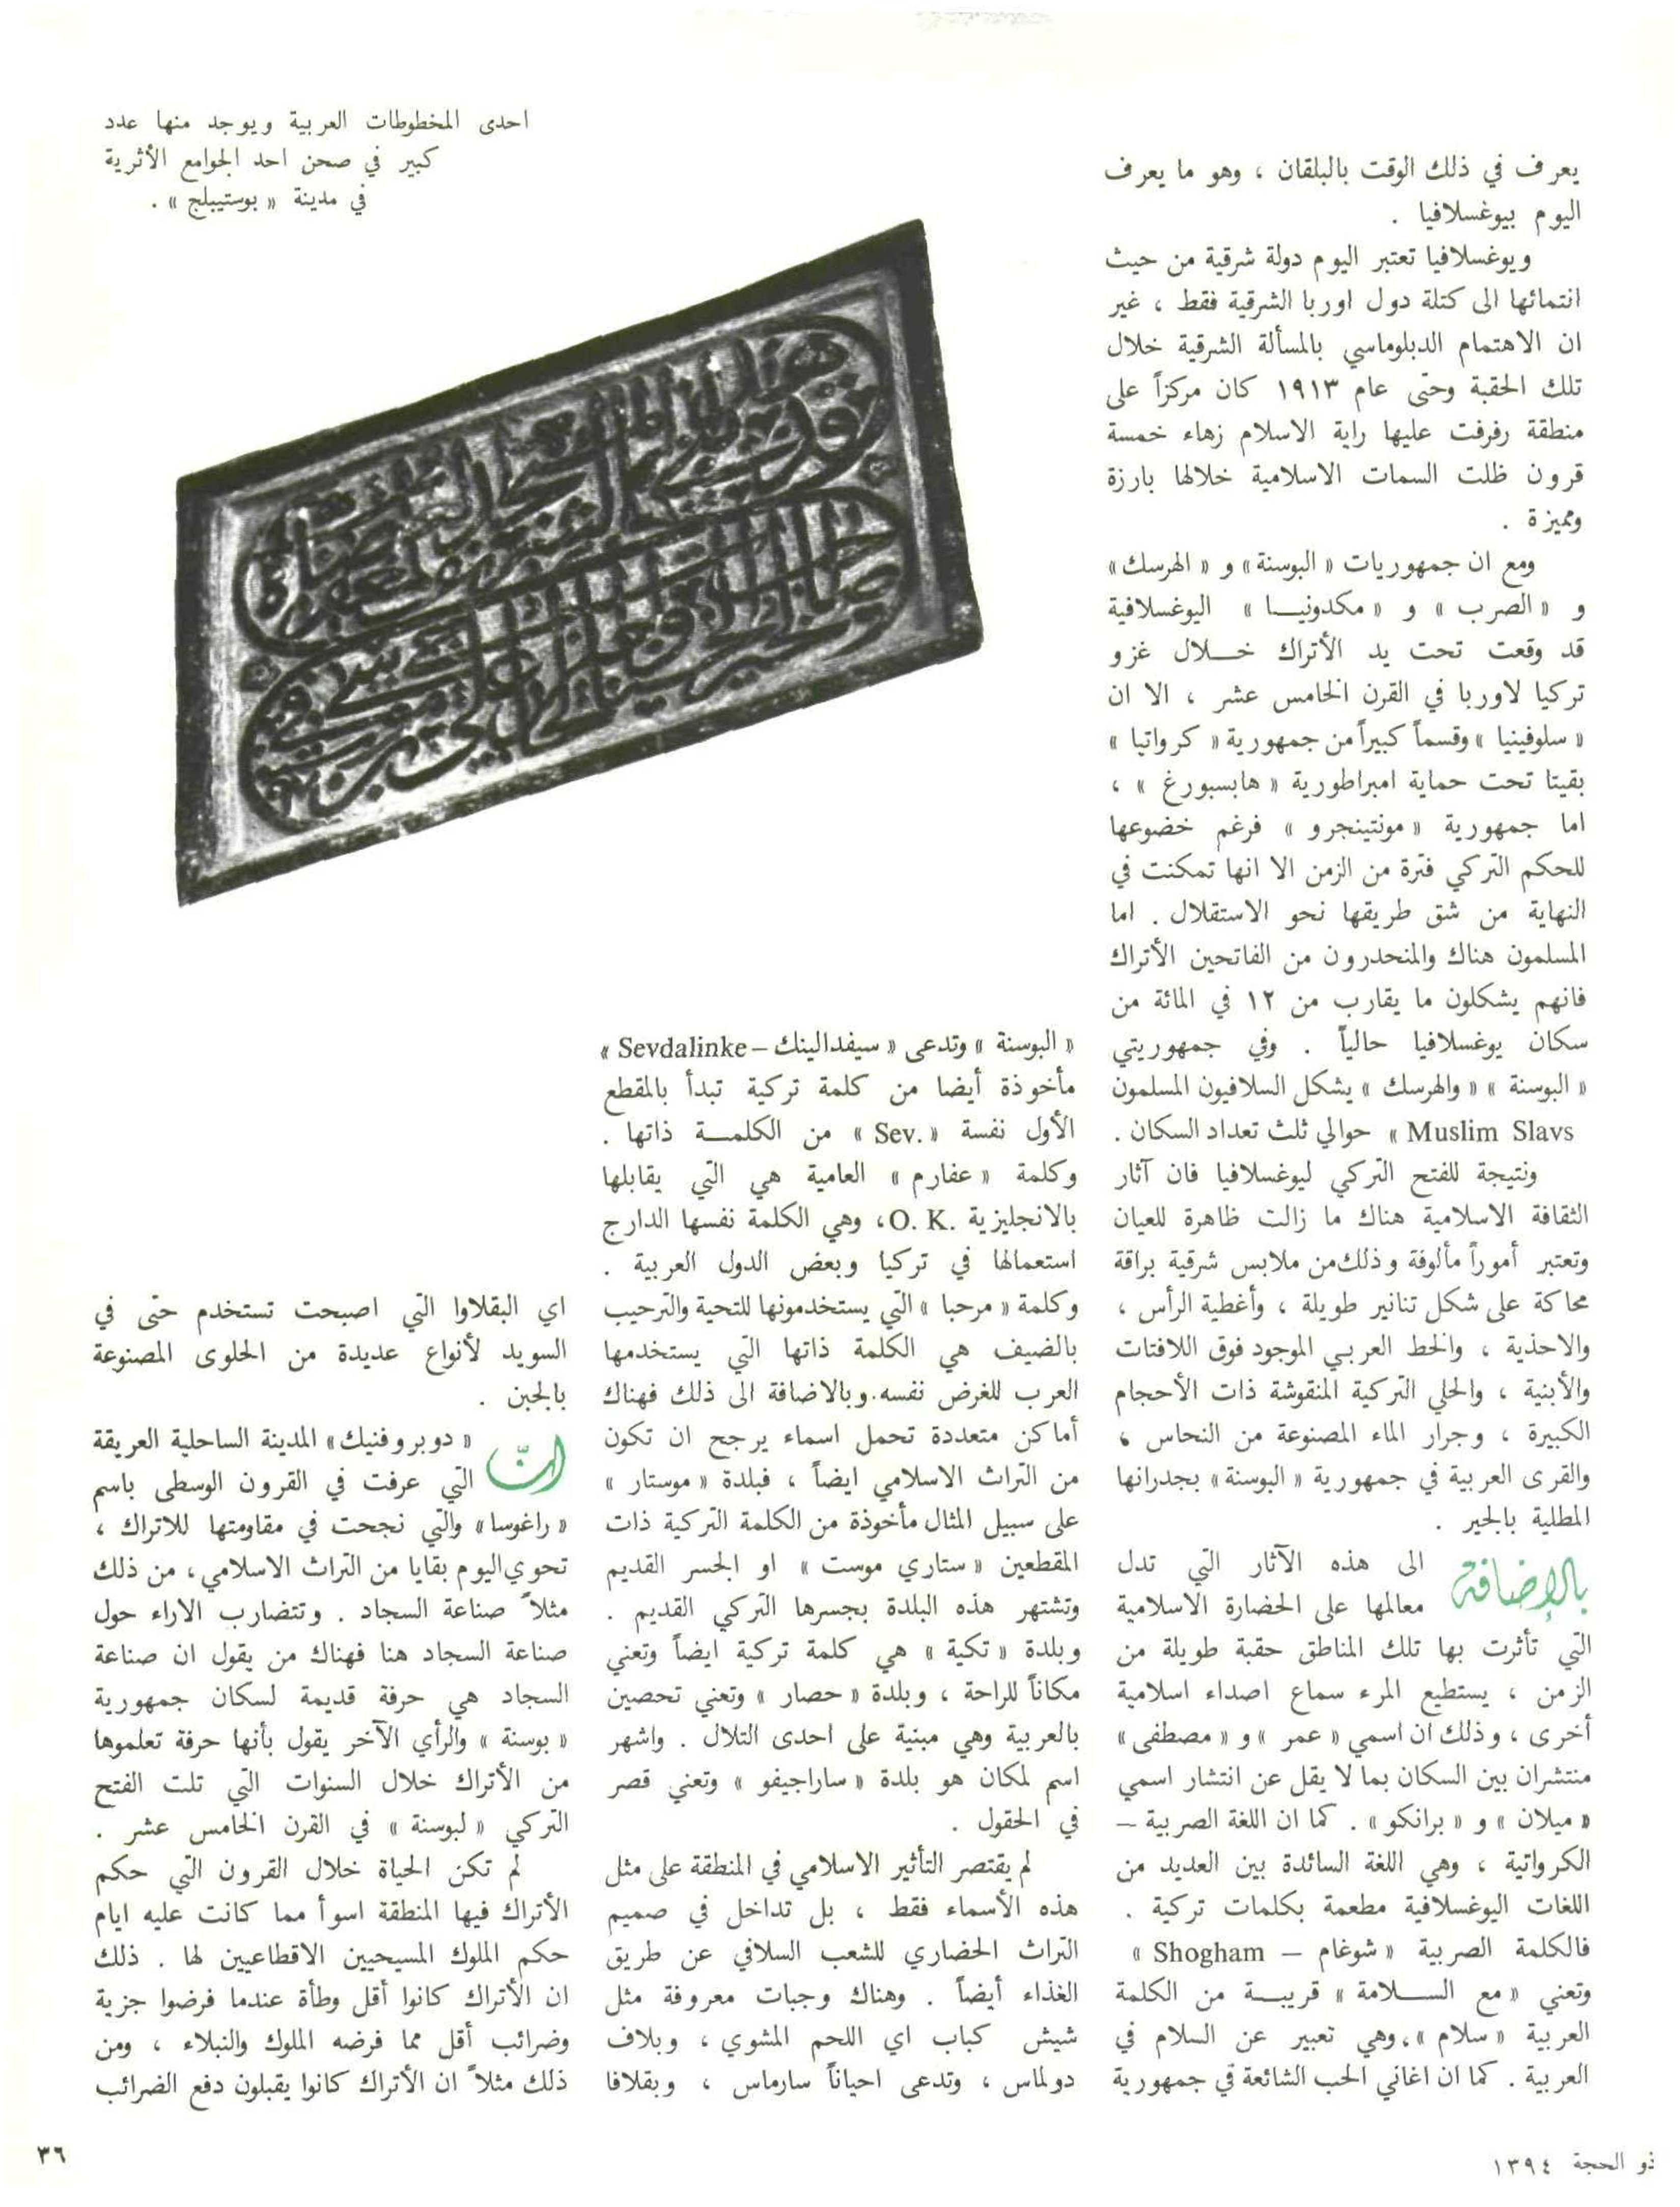 احدى المخطوطات العربية ويوجد منها عدد
كبير في صحن احد الجوامع الأثرية
في مدينة « بوستيبلج » .
يعرف في ذلك الوقت بالبلقان ، وهو ما يعرف
اليوم بيوغسلافيا .
ويوغسلافيا تعتبر اليوم دولة شرقية من حيث
انتمائها الى كتلة دول اوربا الشرقية فقط ، غير
ان الاهتمام الدبلوماسي بالمسألة الشرقية خلال
تلك الحقبة وحتى عام ١٩١٣ كان مركزاً على
منطقة رفرفت عليها راية الاسلام زهاء خمسة
قرون ظلت السمات الاسلامية خلالها بارزة
ومميزة .
ومع ان جمهوريات « البوسنة » و « الهرسك »
و « الصرب » و « مكدونيـــا » اليوغسلافية
قد وقعت تحت يد الأتراك خـــلال غزو
تركيا لاوربا في القرن الخامس عشر ، الا ان
« سلوفينيا » وقسماً كبيراً من جمهورية « كرواتيا »
بقيتا تحت حماية امبراطورية « هابسبورغ » ،
اما جمهورية « مونتينجرو » فرغم خضوعها
للحكم التركي فترة من الزمن الا انها تمكنت في
النهاية من شق طريقها نحو الاستقلال . اما
المسلمون هناك والمنحدرون من الفاتحين الأتراك
فانهم يشكلون ما يقارب من ١٢ في المائة من
سكان يوغسلافيا حالياً . وفي جمهوريتي
« البوسنة » « والهرسك » يشكل السلافيون المسلمون
Muslim Slavs » حوالي ثلث تعداد السكان .
ونتيجة للفتح التركي ليوغسلافيا فان آثار
الثقافة الاسلامية هناك ما زالت ظاهرة للعيان
وتعتبر أموراً مألوفة وذلك من ملابس شرقية براقة
محاكة على شكل تنانير طويلة ، وأغطية الرأس ،
والاحذية ، والخط العربي الموجود فوق اللافتات
والأبنية ، والحلي التركية المنقوشة ذات الأحجام
الكبيرة ، وجرار الماء المصنوعة من النحاس ،
والقرى العربية في جمهورية « البوسنة » بجدرانها
المطلية بالجير .
بالإضافة الى هذه الآثار التي تدل
معالمها على الحضارة الاسلامية
التي تأثرت بها تلك المناطق حقبة طويلة من
الزمن ، يستطيع المرء سماع اصداء اسلامية
أخرى ، وذلك ان اسمي « عمر » و « مصطفى »
منتشران بين السكان بما لا يقل عن انتشار اسمي
« ميلان » و « برانكو » . كما ان اللغة الصربية –
الكرواتية ، وهي اللغة السائدة بين العديد من
اللغات اليوغسلافية مطعمة بكلمات تركية .
فالكلمة الصربية « شوغام – Shogham »
وتعني « مع الســـلامة » قريبـــة من الكلمة
العربية « سلام »، وهي تعبير عن السلام في
العربية . كما ان اغاني الحب الشائعة في جمهورية
« البوسنة » وتدعى « سيفدالينك – Sevdalinke »
مأخوذة أيضا من كلمة تركية تبدأ بالمقطع
الأول نفسة « Sev. » من الكلمـــة ذاتها .
وكلمة « عفارم » العامية هي التي يقابلها
بالانجليزية O. K.، وهي الكلمة نفسها الدارج
استعمالها في تركيا وبعض الدول العربية .
وكلمة « مرحبا » التي يستخدمونها للتحية والترحيب
بالضيف هي الكلمة ذاتها التي يستخدمها
العرب للغرض نفسه. وبالاضافة الى ذلك فهناك
أماكن متعددة تحمل اسماء يرجح ان تكون
من التراث الاسلامي ايضاً ، فبلدة « موستار »
على سبيل المثال مأخوذة من الكلمة التركية ذات
المقطعين « ستاري موست » او الجسر القديم
وتشتهر هذه البلدة بجسرها التركي القديم .
وبلدة « تكية » هي كلمة تركية ايضاً وتعني
مكاناً للراحة ، وبلدة « حصار » وتعني تحصين
بالعربية وهي مبنية على احدى التلال . واشهر
اسم لمكان هو بلدة « ساراجيفو » وتعني قصر
في الحقول .
لم يقتصر التأثير الاسلامي في المنطقة على مثل
هذه الأسماء فقط ، بل تداخل في صميم
التراث الحضاري للشعب السلافي عن طريق
الغذاء أيضاً . وهناك وجبات معروفة مثل
شيش كباب اي اللحم المشوي ، وبلاف
دولماس ، وتدعى احياناً سارماس ، وبقلافا
اي البقلاوا التي اصبحت تستخدم حتى في
السويد لأنواع عديدة من الحلوى المصنوعة
بالجبن .
انّ « دوبروفنيك » المدينة الساحلية العريقة
التي عرفت في القرون الوسطى باسم
« راغوسا » والتي نجحت في مقاومتها للاتراك ،
تحوي اليوم بقايا من التراث الاسلامي ، من ذلك
مثلاً صناعة السجاد . وتتضارب الاراء حول
صناعة السجاد هنا فهناك من يقول ان صناعة
السجاد هي حرفة قديمة لسكان جمهورية
« بوسنة » والرأي الآخر يقول بأنها حرفة تعلموها
من الأتراك خلال السنوات التي تلت الفتح
التركي « لبوسنة » في القرن الخامس عشر .
لم تكن الحياة خلال القرون التي حكم
الأتراك فيها المنطقة اسوأ مما كانت عليه ايام
حكم الملوك المسيحيين الاقطاعيين لها . ذلك
ان الأتراك كانوا أقل وطأة عندما فرضوا جزية
وضرائب أقل مما فرضه الملوك والنبلاء ، ومن
ذلك مثلاً ان الأتراك كانوا يقبلون دفع الضرائب
ذو الحجة ١٣٩٤
٣٦